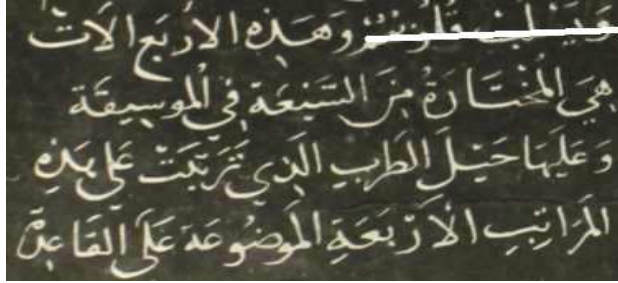 وهذه الاربع الات
هِيَ المُخْتَارَةُ مِنَ السَّبْعَة فِي الْموسِيقَة
وَعَلَيْهَا حَيْلَ الطَرَبِ الَّذِي تَرَتَّبَتْ عَلَى هَذِهِ
المَرَاتِبِ الاَرْبَعَةِ المَوضُوعَة عَلَى القَاعِدَة